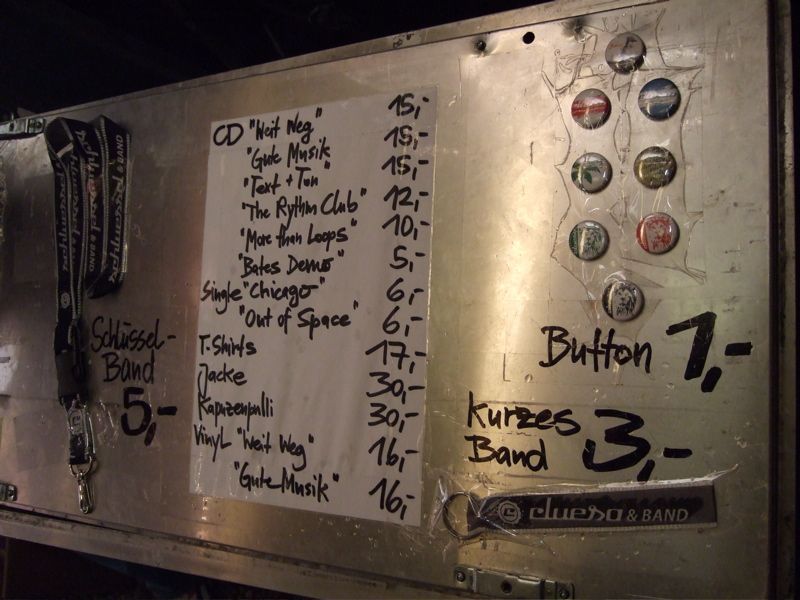 CD "Weit Weg" 15,-
"Gute Musik 15,-
"Text + Ton" 15,-
"The Rythm Club" 12,-
"More than Loops" 10,-
"Bates Demo" 5,-
Single "Chicago" 6,-
"Out of Space" 6,-
T-Shirts 17,-
Jacke 30,-
Kapuzenpulli 30,-
Vinyl "Weit Weg" 16,-
"Gute Musik" 16,-
Schlüssel-
Band
5,-
Button 1,-
kurzes
Band 3,-
clueso & BAND